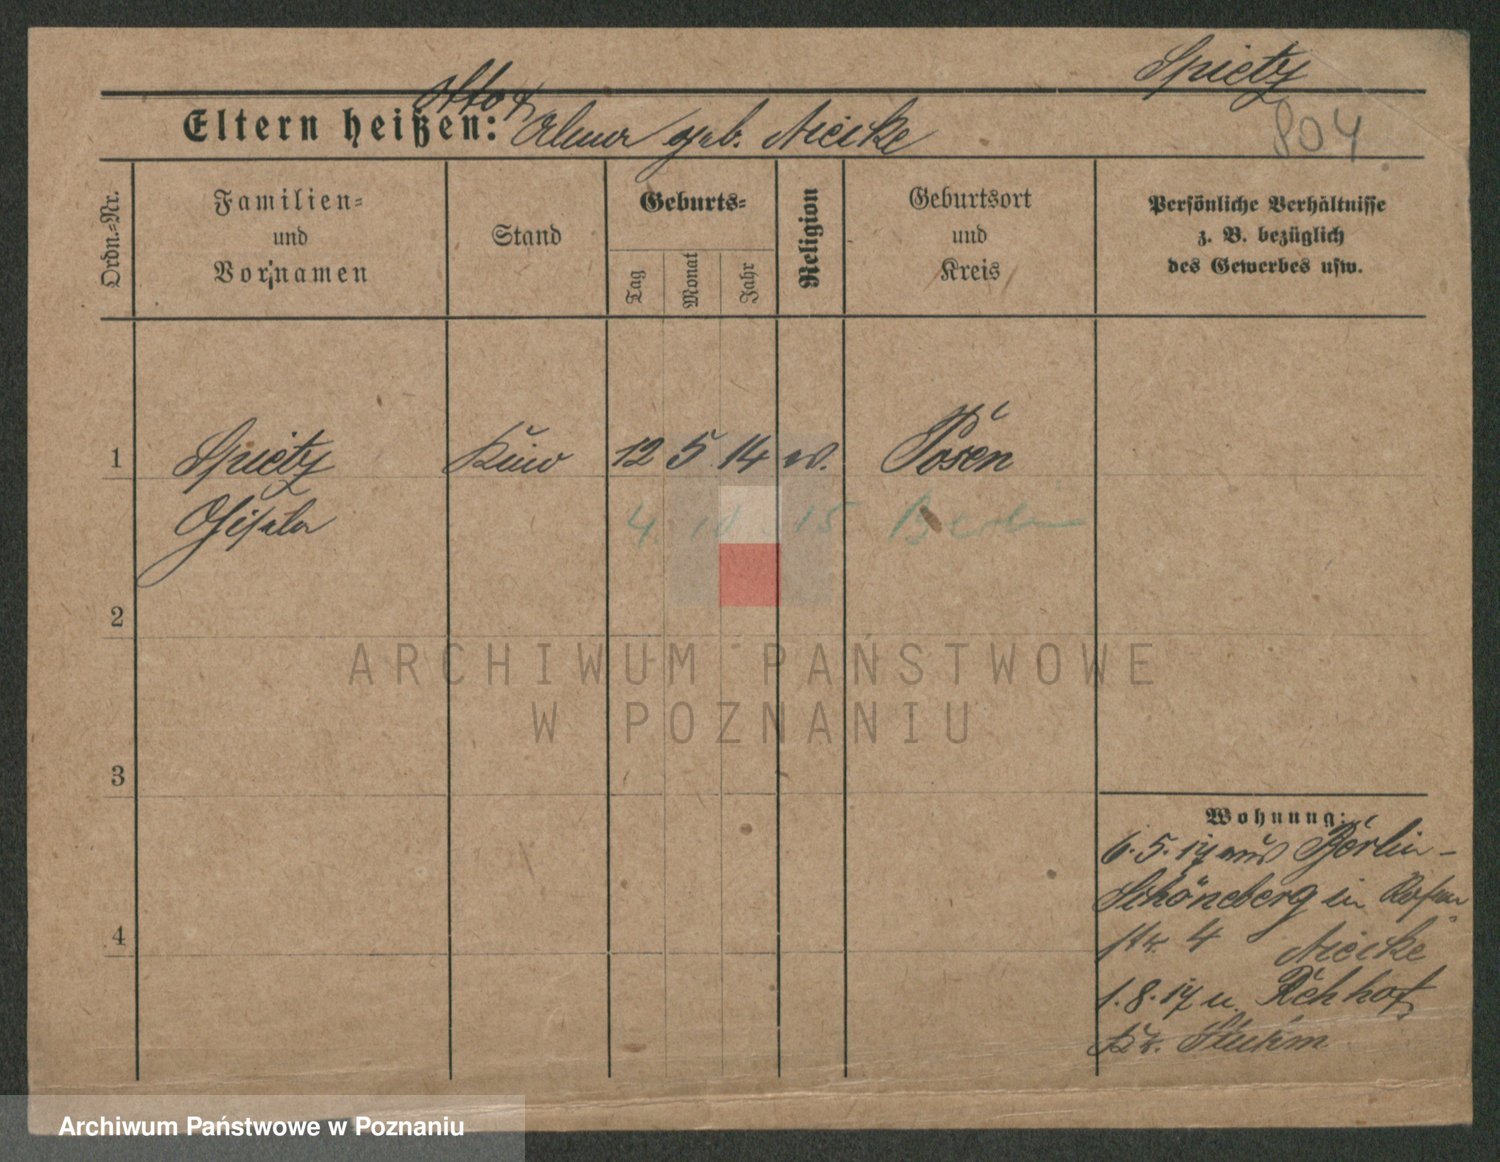 Spietz
804
Otto &
Eltern heißen: Alma geb. Neicke
Ordn.-Nr.
Familien-
und
Vornamen
Stand
Geburts-
Tag
Monat
Jahr
Religion
Geburtsort
und
Kreis
Persönliche Verhältnisse
z. B. bezüglich
des Gewerbes usw.
1
Spietz
Gisela
12 5 14
Posen
4. 10 15 Berlin
2
ARCHIWUM PAŃSTWOWE
W POZNANIU
3
Wohnung:
6. 5. 14 aus Berlin-
Schöneberg in
str. 4 Neicke
1. 8. 17 n. Rehhof
Kr. Stuhm
4
Archiwum Państwowe w Poznaniu